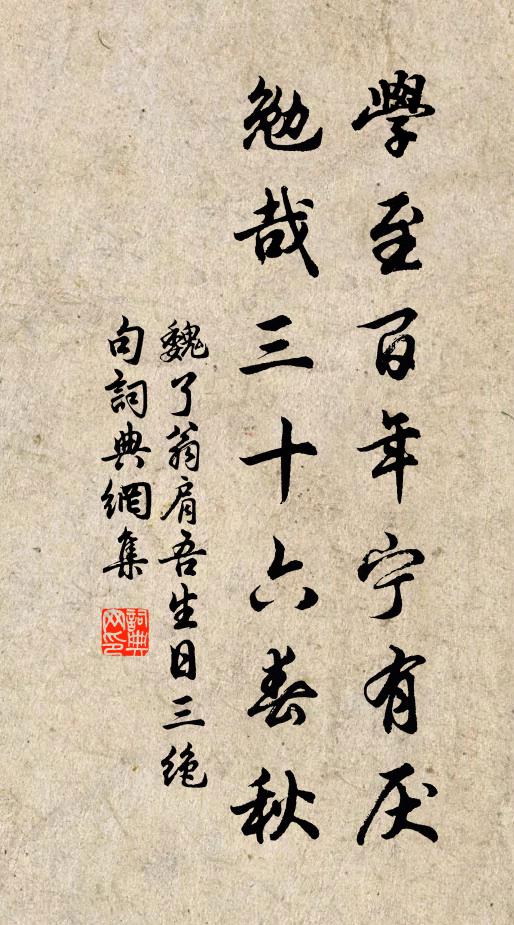 學至百年宁有厌
勉哉三十六春秋
魏了翁肩吾生日三绝
句詞典網集
詞典网印